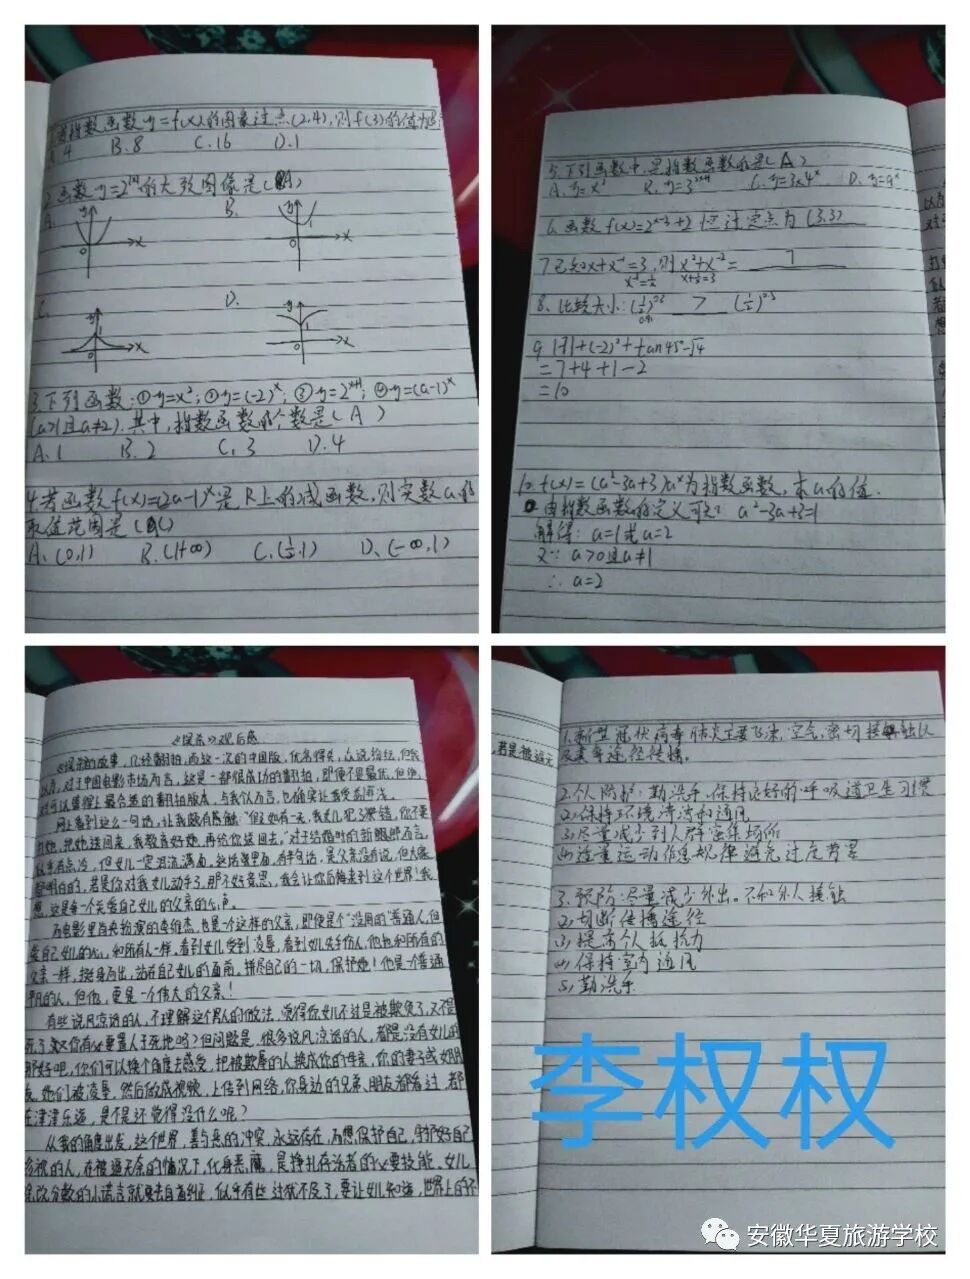 1.若指数函数y=f(x)的图象过点(2,4),则f(3)的值为
A.4 B.8 C.16 D.1
2.函数y=2^|x|的大致图像是( A)
A. B.
y y
1
x x
0 0
C. D.
y y
1 1
x x
0 0
3.下列函数:①y=x²;②y=(-2)^x;③y=2^(x+1);④y=(a-1)^x
(a>1且a≠2).其中,指数函数的个数是( A )
A.1 B.2 C.3 D.4
4.若函数f(x)=(2a-1)^x是R上的减函数,则实数a的
取值范围是( C)
A、(0,1) B.(1,+∞) C.(½,1) D、(-∞,1)
5.下列函数中,是指数函数的是( A )
A. y=x² B. y=3^(x+1) C. y=3×4^x D. y=9^x
6.函数f(x)=2^(x-3)+2恒过定点为 (3,3)
7.已知x+x⁻¹=3,则x²+x⁻²= 7
8、比较大小: >
9. |7|+(-2)²+tan45°-√4
=7+4+1-2
=10
10. f(x)=(a²-3a+3)a^x为指数函数,求a的值.
由指数函数的定义可知 a²-3a+3=1
解得: a=1或a=2
又∵ a>0且a≠1
∴ a=2
《误杀》观后感
《误杀》的故事,几经翻拍,而这一次的中国版,优劣得失,众说纷纭,但我
以为,对于中国电影市场而言,这是一部很成功的翻拍,即便不是最优,但绝
对可以算得上最合适的翻拍版本,与我个人而言,也确实让我受益匪浅。
网上看到这么一句话,让我颇有感触:"假如有一天,我女儿犯了弊错,你不要
打她,把她送回来,我教育好她,再给你送回去。"对于结婚时的新郎郎而言,
似乎有点冷,但女儿一定泪流满面,这话里面,有半句话,是父亲没有说,但大家
都明白的,若是你对我女儿动手了,那不好意思,我会让你后悔来到这个世界!我
想,这是每一个关爱自己女儿的父亲的心声。
而电影里肖央扮演的李维杰,也是一个这样的父亲,即使是个"没用的"普通人,但
爱自己女儿的心,和所有人一样,看到女儿受到凌辱,看到女儿失手伤人,他也和所有的
父亲一样,挺身而出,站在自己女儿的面前,拼尽自己的一切,保护她!他是一个普通
平凡的人,但他,更是一个伟大的父亲!
有些说风凉话的人,不理解这个男人的做法,觉得你女儿不过是被欺负了,又不是
死了,致人于死地吗?但问题是,很多说风凉话的人,都是没有女儿的
那好吧,你们可以换个角度去感受,把被欺辱的人换成你的母亲,你的妻子或女朋
友,她们被凌辱,然后做成视频,上传到网络,你身边的兄弟、朋友都看过,都
在津津乐道,是不是还觉得没什么呢?
从我的角度出发,这个世界,善与恶的冲突,永远存在,而想保护自己,守护好自己
珍视的人,在被逼无奈的情况下,化身恶魔,是挣扎存活着的必要技能,女儿
篡改分数的小谎言就要去自首纠正,似乎有些过犹不及了,要让女儿知道,世界上的不
若是被逼无
1.新型冠状病毒肺炎主要飞沫、空气、密切接触以
及粪等途径传播。
2.个人防护:勤洗手、保持良好的呼吸道卫生习惯
2)保持环境清洁和通风
3)尽量减少到人群密集场所
4)适量运动、作息规律、避免过度劳累
3.预防:尽量减少外出。不和外人接触
2)切断传播途径
3)提高个人抵抗力
4)保持室内通风
5)勤洗手
李权权
安徽华夏旅游学校